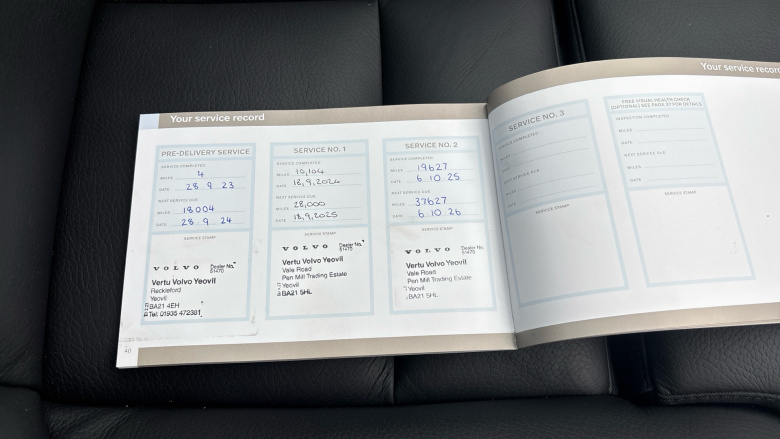 Your service record
PRE-DELIVERY SERVICE
SERVICE COMPLETED
MILES 4
DATE 28 9 23
NEXT SERVICE DUE
MILES 18004
DATE 28 9 24
SERVICE STAMP
VOLVO Dealer No.
51470
Vertu Volvo Yeovil
Reckleford
Yeovil
BA21 4EH
Tel: 01935 472381
SERVICE NO. 1
SERVICE COMPLETED
MILES 10,104
DATE 18,9,2024
NEXT SERVICE DUE
MILES 28,000
DATE 18,9,2025
SERVICE STAMP
VOLVO Dealer No.
51470
Vertu Volvo Yeovil
Vale Road
Pen Mill Trading Estate
Yeovil
BA21 5HL
SERVICE NO. 2
SERVICE COMPLETED
MILES 19627
DATE 6 10 25
NEXT SERVICE DUE
MILES 37627
DATE 6 10 26
SERVICE STAMP
VOLVO Dealer No.
51470
Vertu Volvo Yeovil
Vale Road
Pen Mill Trading Estate
Yeovil
BA21 5HL
40
Your service record
SERVICE NO. 3
SERVICE COMPLETED
MILES
DATE
NEXT SERVICE DUE
MILES
DATE
SERVICE STAMP
FREE VISUAL HEALTH CHECK
(OPTIONAL) SEE PAGE 37 FOR DETAILS
INSPECTION COMPLETED
MILES
DATE
NEXT SERVICE DUE
MILES
DATE
SERVICE STAMP